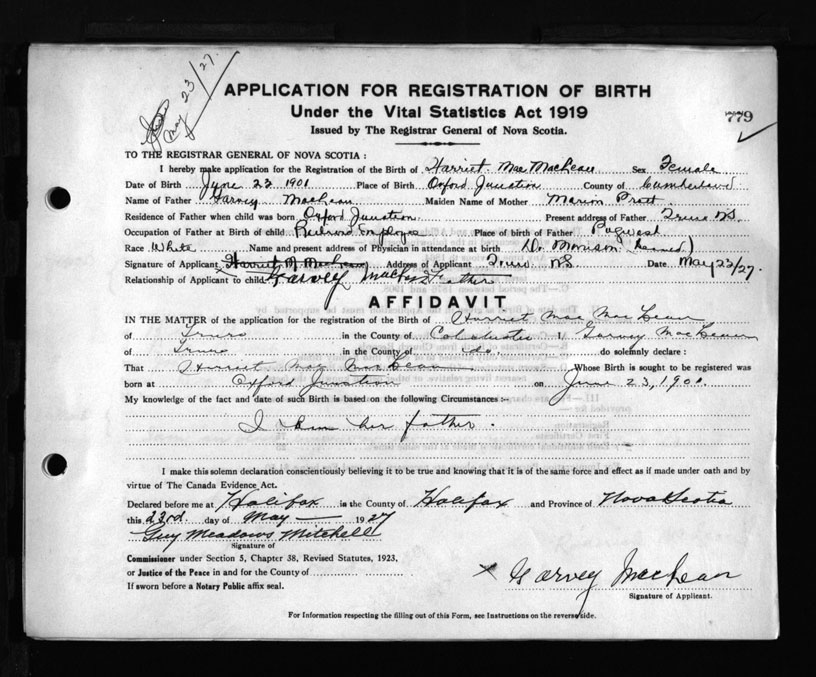 May 23/27.
APPLICATION FOR REGISTRATION OF BIRTH
Under the Vital Statistics Act 1919
779
Issued by The Registrar General of Nova Scotia.
TO THE REGISTRAR GENERAL OF NOVA SCOTIA :
I hereby make application for the Registration of the Birth of Harriet Mae MacLean Sex Female
Date of Birth June 23 1901 Place of Birth Oxford Junction County of Cumberland
Name of Father Garvey MacLean Maiden Name of Mother Marion Pratt
Residence of Father when child was born Oxford Junction Present address of Father Truro N.S.
Occupation of Father at Birth of child Railroad Employee Place of Birth of Father Pugwash
Race White Name and present address of Physician in attendance at birth Dr. Morrison
Signature of Applicant Harriet M. MacLean Address of Applicant Truro N.S. Date May 23/27.
Relationship of Applicant to child Garvey Father
AFFIDAVIT
IN THE MATTER of the application for the registration of the Birth of Harriet Mae MacLean
of Truro in the County of Colchester I, Garvey MacLean
of Truro in the County of do. do solemnly declare :
That Harriet Mae MacLean Whose Birth is sought to be registered was
born at Oxford Junction on June 23, 1901.
My knowledge of the fact and date of such Birth is based on the following Circumstances :-
I am her father.
I make this solemn declaration conscientiously believing it to be true and knowing that it is of the same force and effect as if made under oath and by
virtue of The Canada Evidence Act.
Declared before me at Halifax in the County of Halifax and Province of Nova Scotia
this 23rd. day of May 1927
Guy Meadows Mitchell
Signature of
Commissioner under Section 5, Chapter 38, Revised Statutes, 1923,
or Justice of the Peace in and for the County of
If sworn before a Notary Public affix seal.
x Garvey MacLean
Signature of Applicant.
For Information respecting the filling out of this Form, see Instructions on the reverse side.